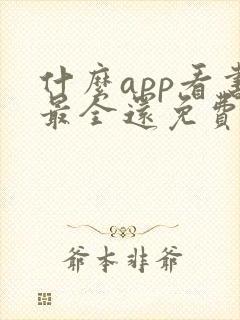 什麼app看書
最全還免費
爺本非爺